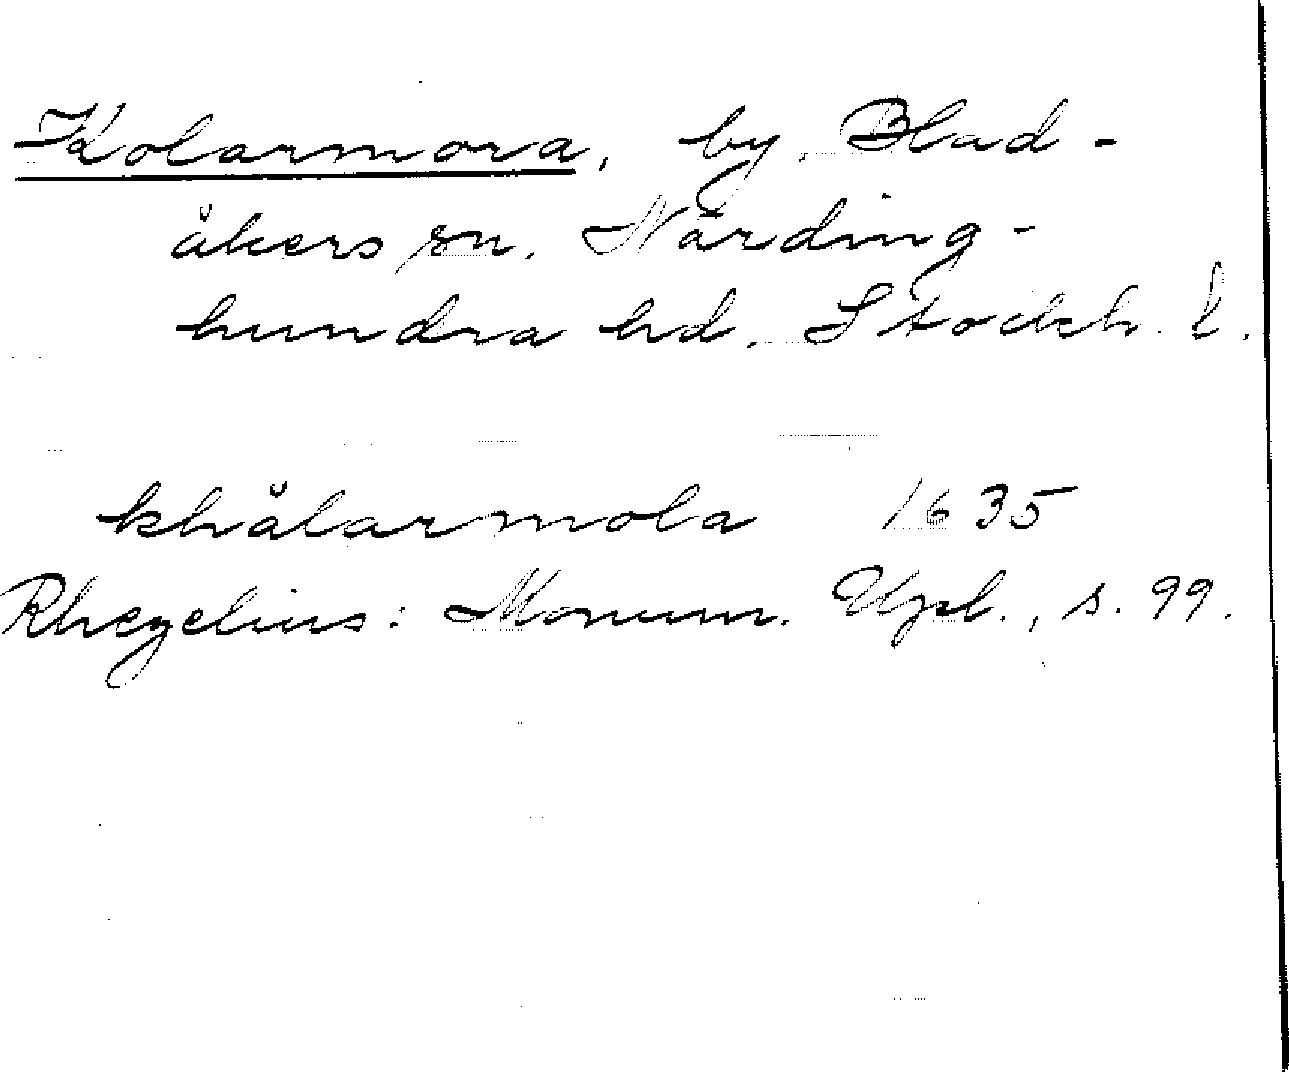 Kolarmora, by. Blad-
åkers sn. Närding-
hundra hd. Stockh. l.
khålarmola 1635
Rhezelius: Monum. Upl., s. 99.